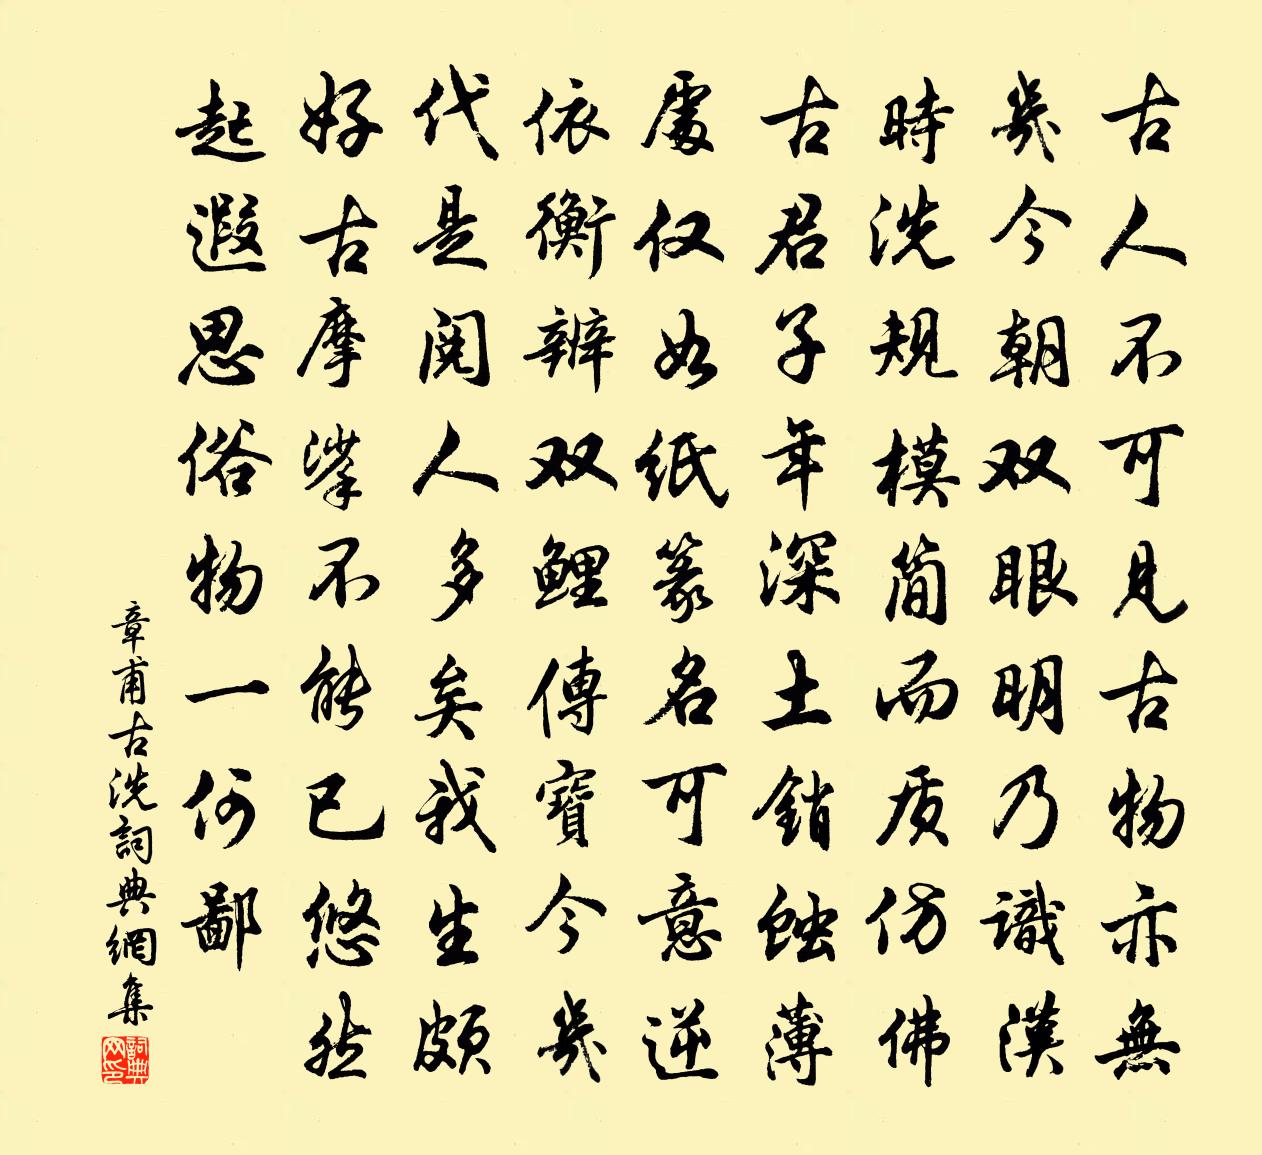 古人不可見古物亦無
幾今朝双眼明乃識漢
時洗規模簡而质仿佛
古君子年深土銷蝕薄
處仅如紙篆名可意逆
依衡辨双鯉傳寶今幾
代是閱人多矣我生頗
好古摩挲不能已悠然
起遐思俗物一何鄙
章甫古洗詞典網集
詞典网印